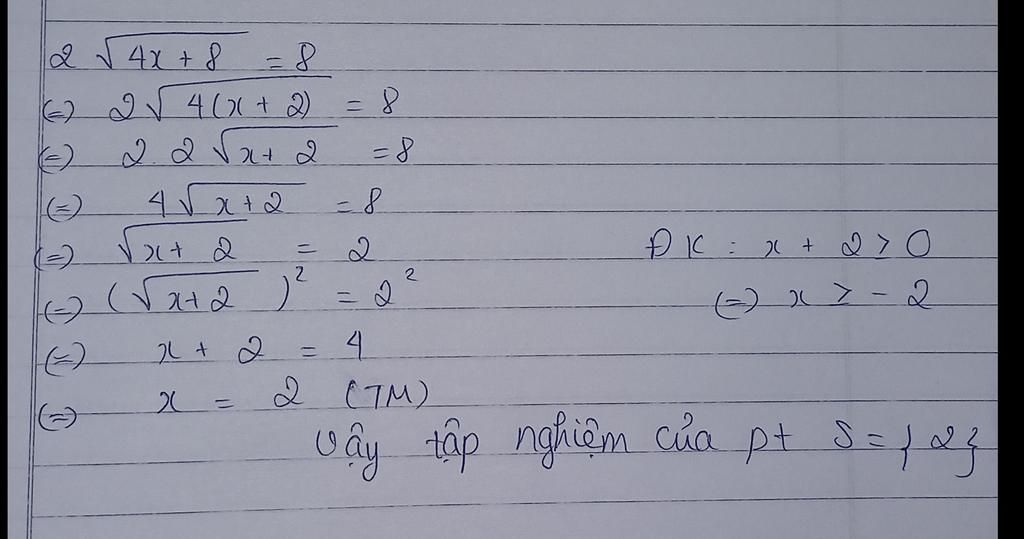 2 √(4x + 8) = 8
(=) 2√(4(x + 2)) = 8
(=) 2 . 2 √(x + 2) = 8
(=) 4√(x + 2) = 8
(=) √(x + 2) = 2
ĐK : x + 2 > 0
(=) (√(x + 2))² = 2²
(=) x > - 2
(=) x + 2 = 4
(=) x = 2 (TM)
Vậy tập nghiệm của pt S = {2}